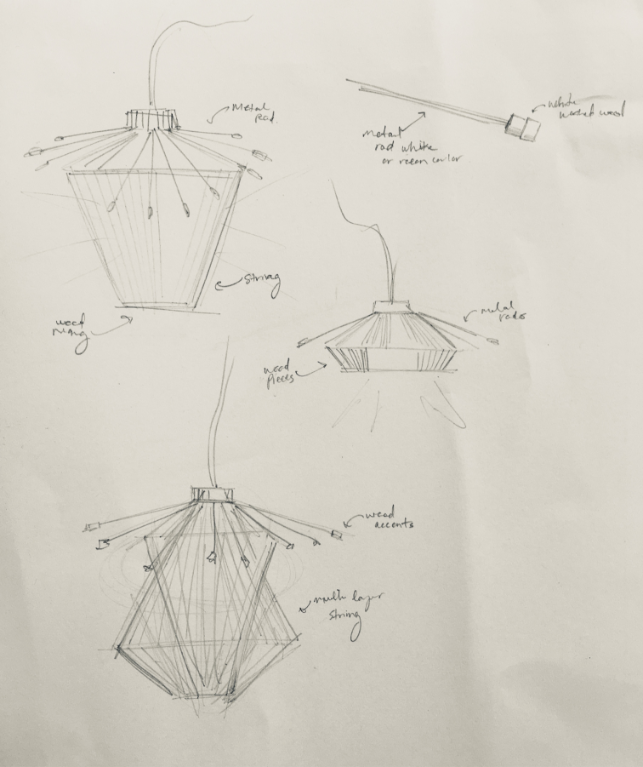 metal
rod
white
washed wood
metal
rod white
or resin color
string
wood
ring
metal
rods
wood
pieces
wood
accents
multi layer
string